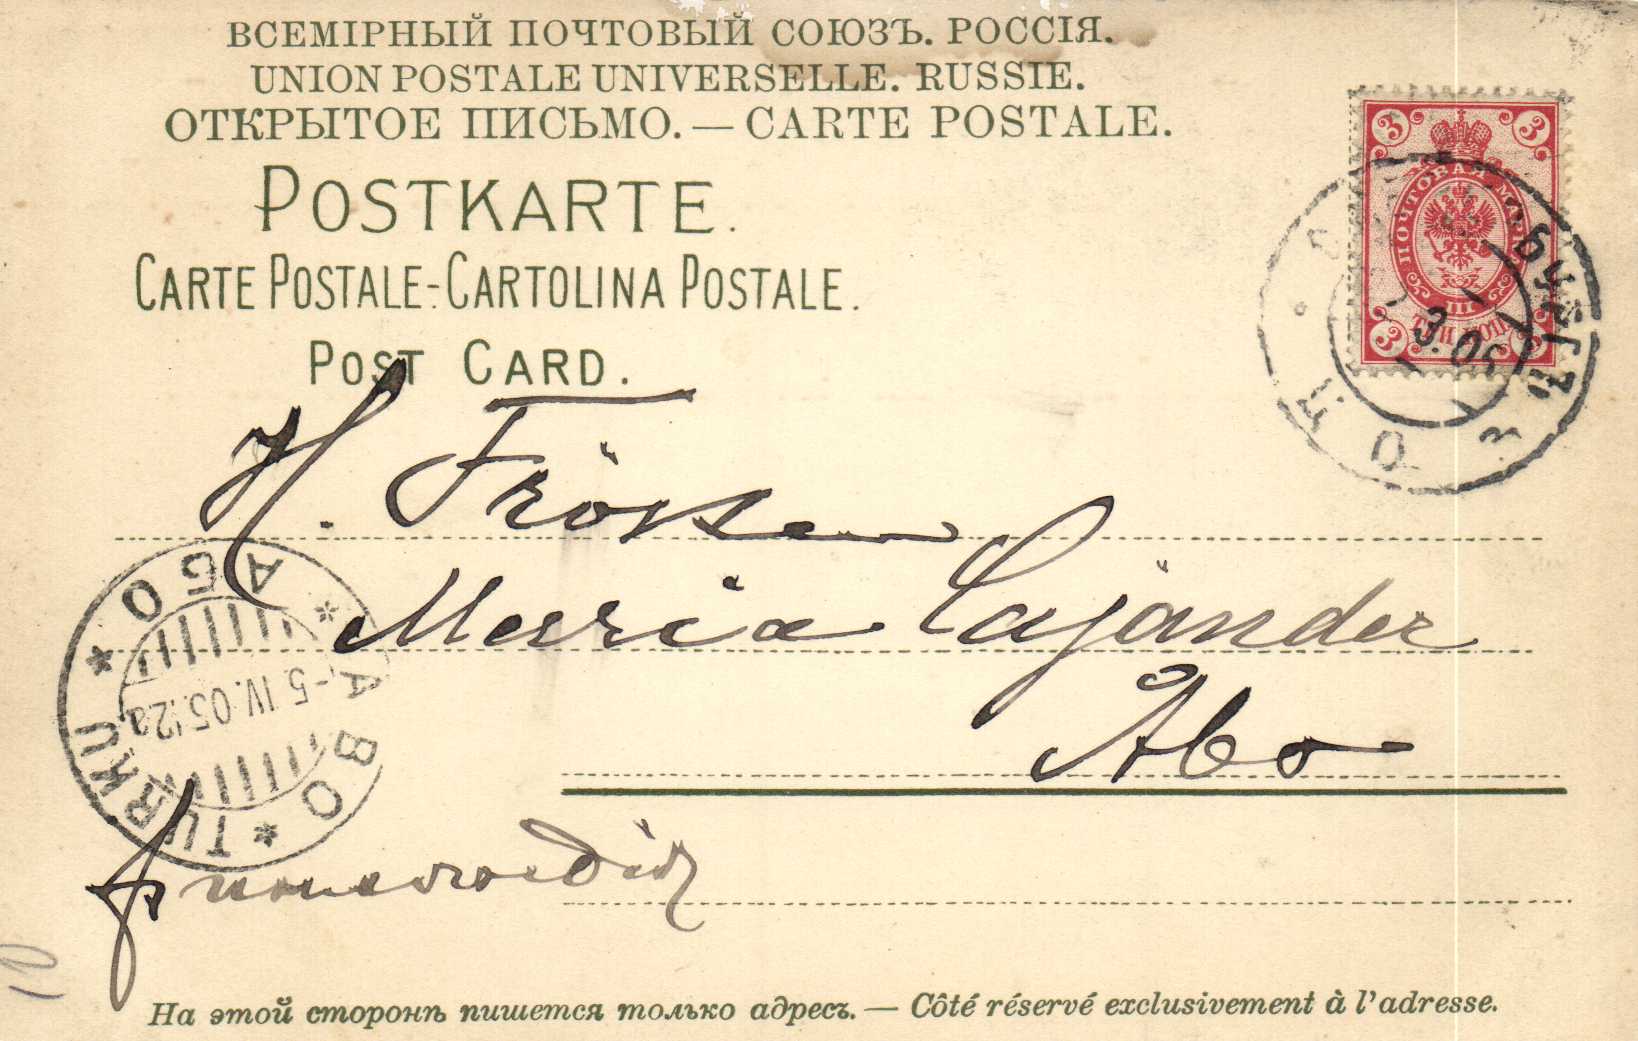 ВСЕМІРНЫЙ ПОЧТОВЫЙ СОЮЗЪ. РОССІЯ.
UNION POSTALE UNIVERSELLE. RUSSIE.
ОТКРЫТОЕ ПИСЬМО. — CARTE POSTALE.
POSTKARTE.
CARTE POSTALE-CARTOLINA POSTALE.
POST CARD.
3 3
ПОЧТОВАЯ МАРКА
III
ТРИ КОП.
3 3
H. Fröken
Maria Cajander
Åbo
АБО * ABO * TURKU *
-5.IV.05.12a
На этой сторонѣ пишется только адресъ. — Côté réservé exclusivement à l'adresse.